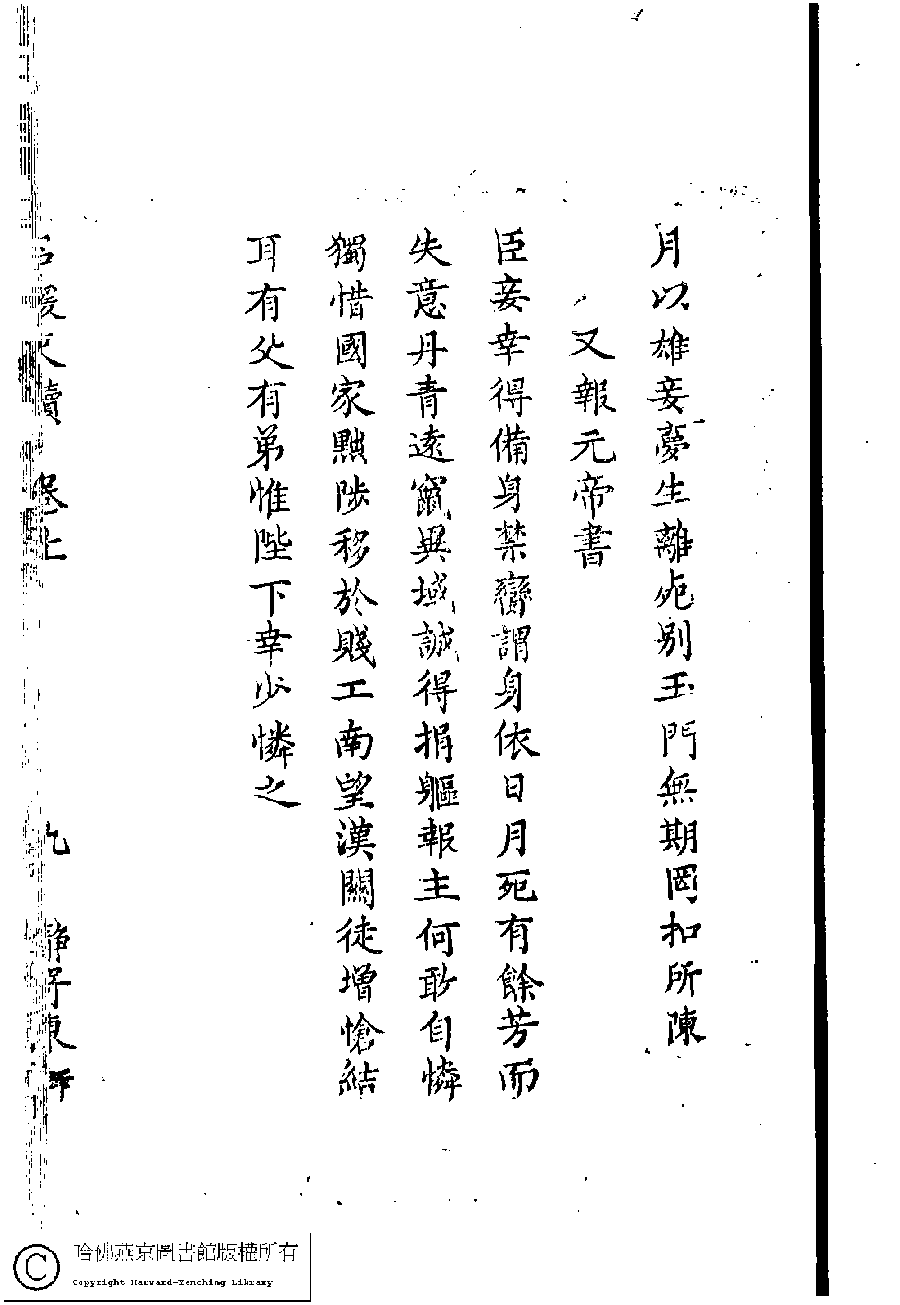 月以雄妾夢生離死别玉門無期罔扣所陳
又報元帝書
臣妾幸得備身禁臠謂身依日月死有餘芳而
失意丹青遠竄異域誠得捐軀報主何敢自憐
獨惜國家黜陟移於賤工南望漢關徒增愴結
耳有父有弟惟陛下幸少憐之
卷上
九
哈佛燕京圖書館版權所有
Copyright Harvard-Yenching Library